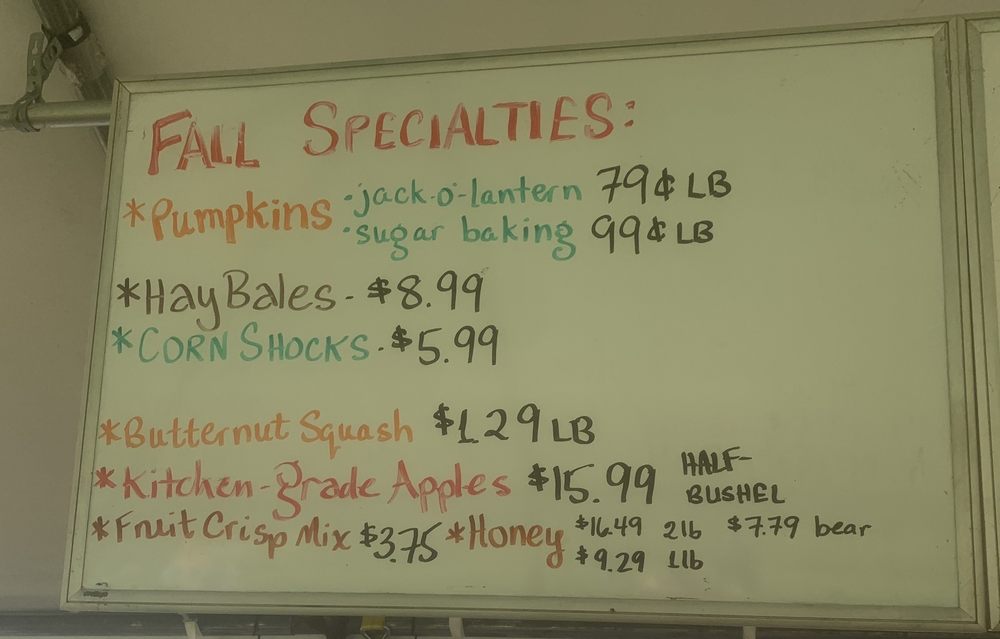 FALL SPECIALTIES:
*Pumpkins •jack-o'-lantern 79¢ LB
•sugar baking 99¢ LB
*Hay Bales - $8.99
*CORN SHOCKS - $5.99
*Butternut Squash $1.29 LB
*Kitchen-grade Apples $15.99 HALF-
BUSHEL
*Fruit Crisp Mix $3.75 *Honey $16.49 2lb $7.79 bear
$9.29 1lb